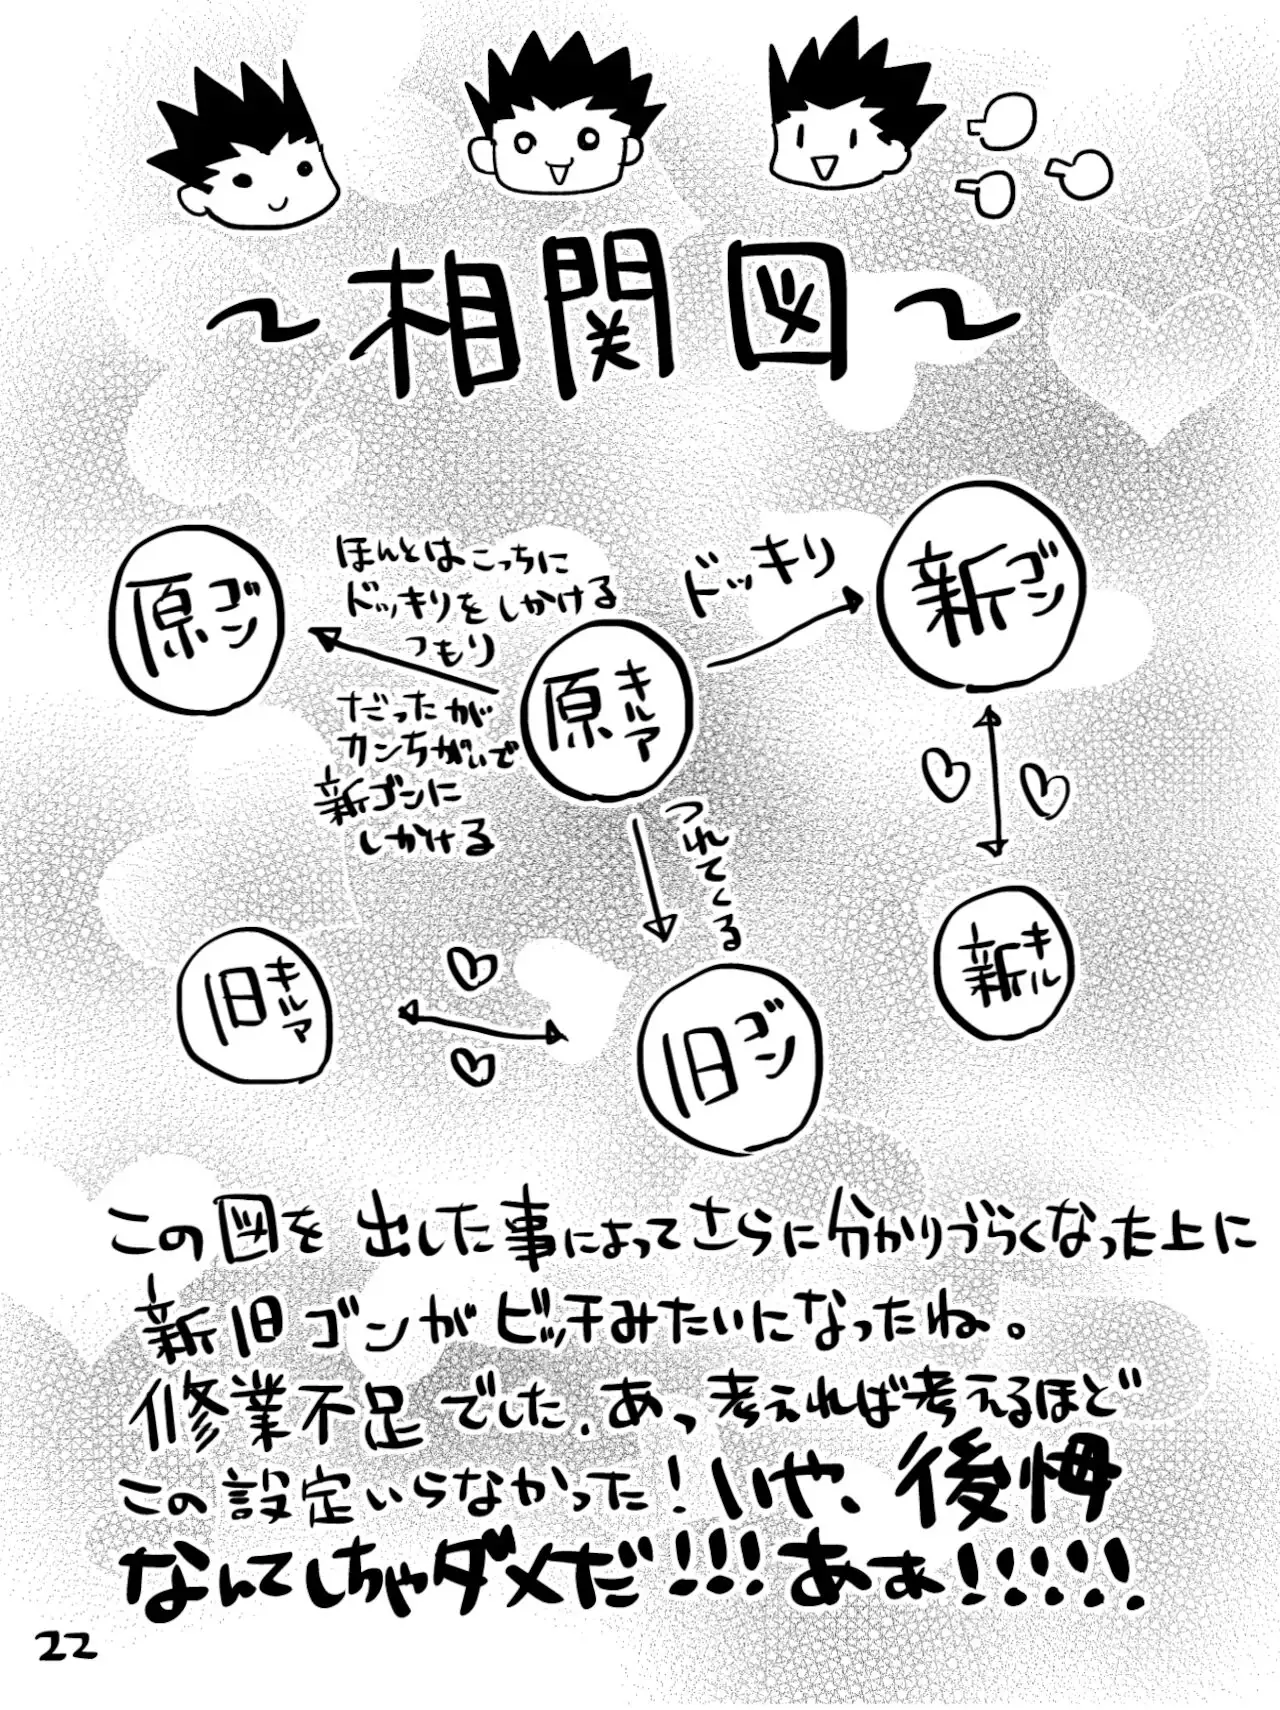 〜相関図〜
原ゴン
ほんとはこっちに
ドッキリをしかける
つもり
だったが
カンちがいで
新ゴンに
しかける
原キルア
ドッキリ
新ゴン
新キル
つれてくる
旧キルア
旧ゴン
この図を出した事によってさらに分かりづらくなった上に
新旧ゴンがビッチみたいになったね。
修業不足でした。あっ考えれば考えるほど
この設定いらなかった!いや、後悔
なんてしちゃダメだ!!!あぁ!!!!!
22